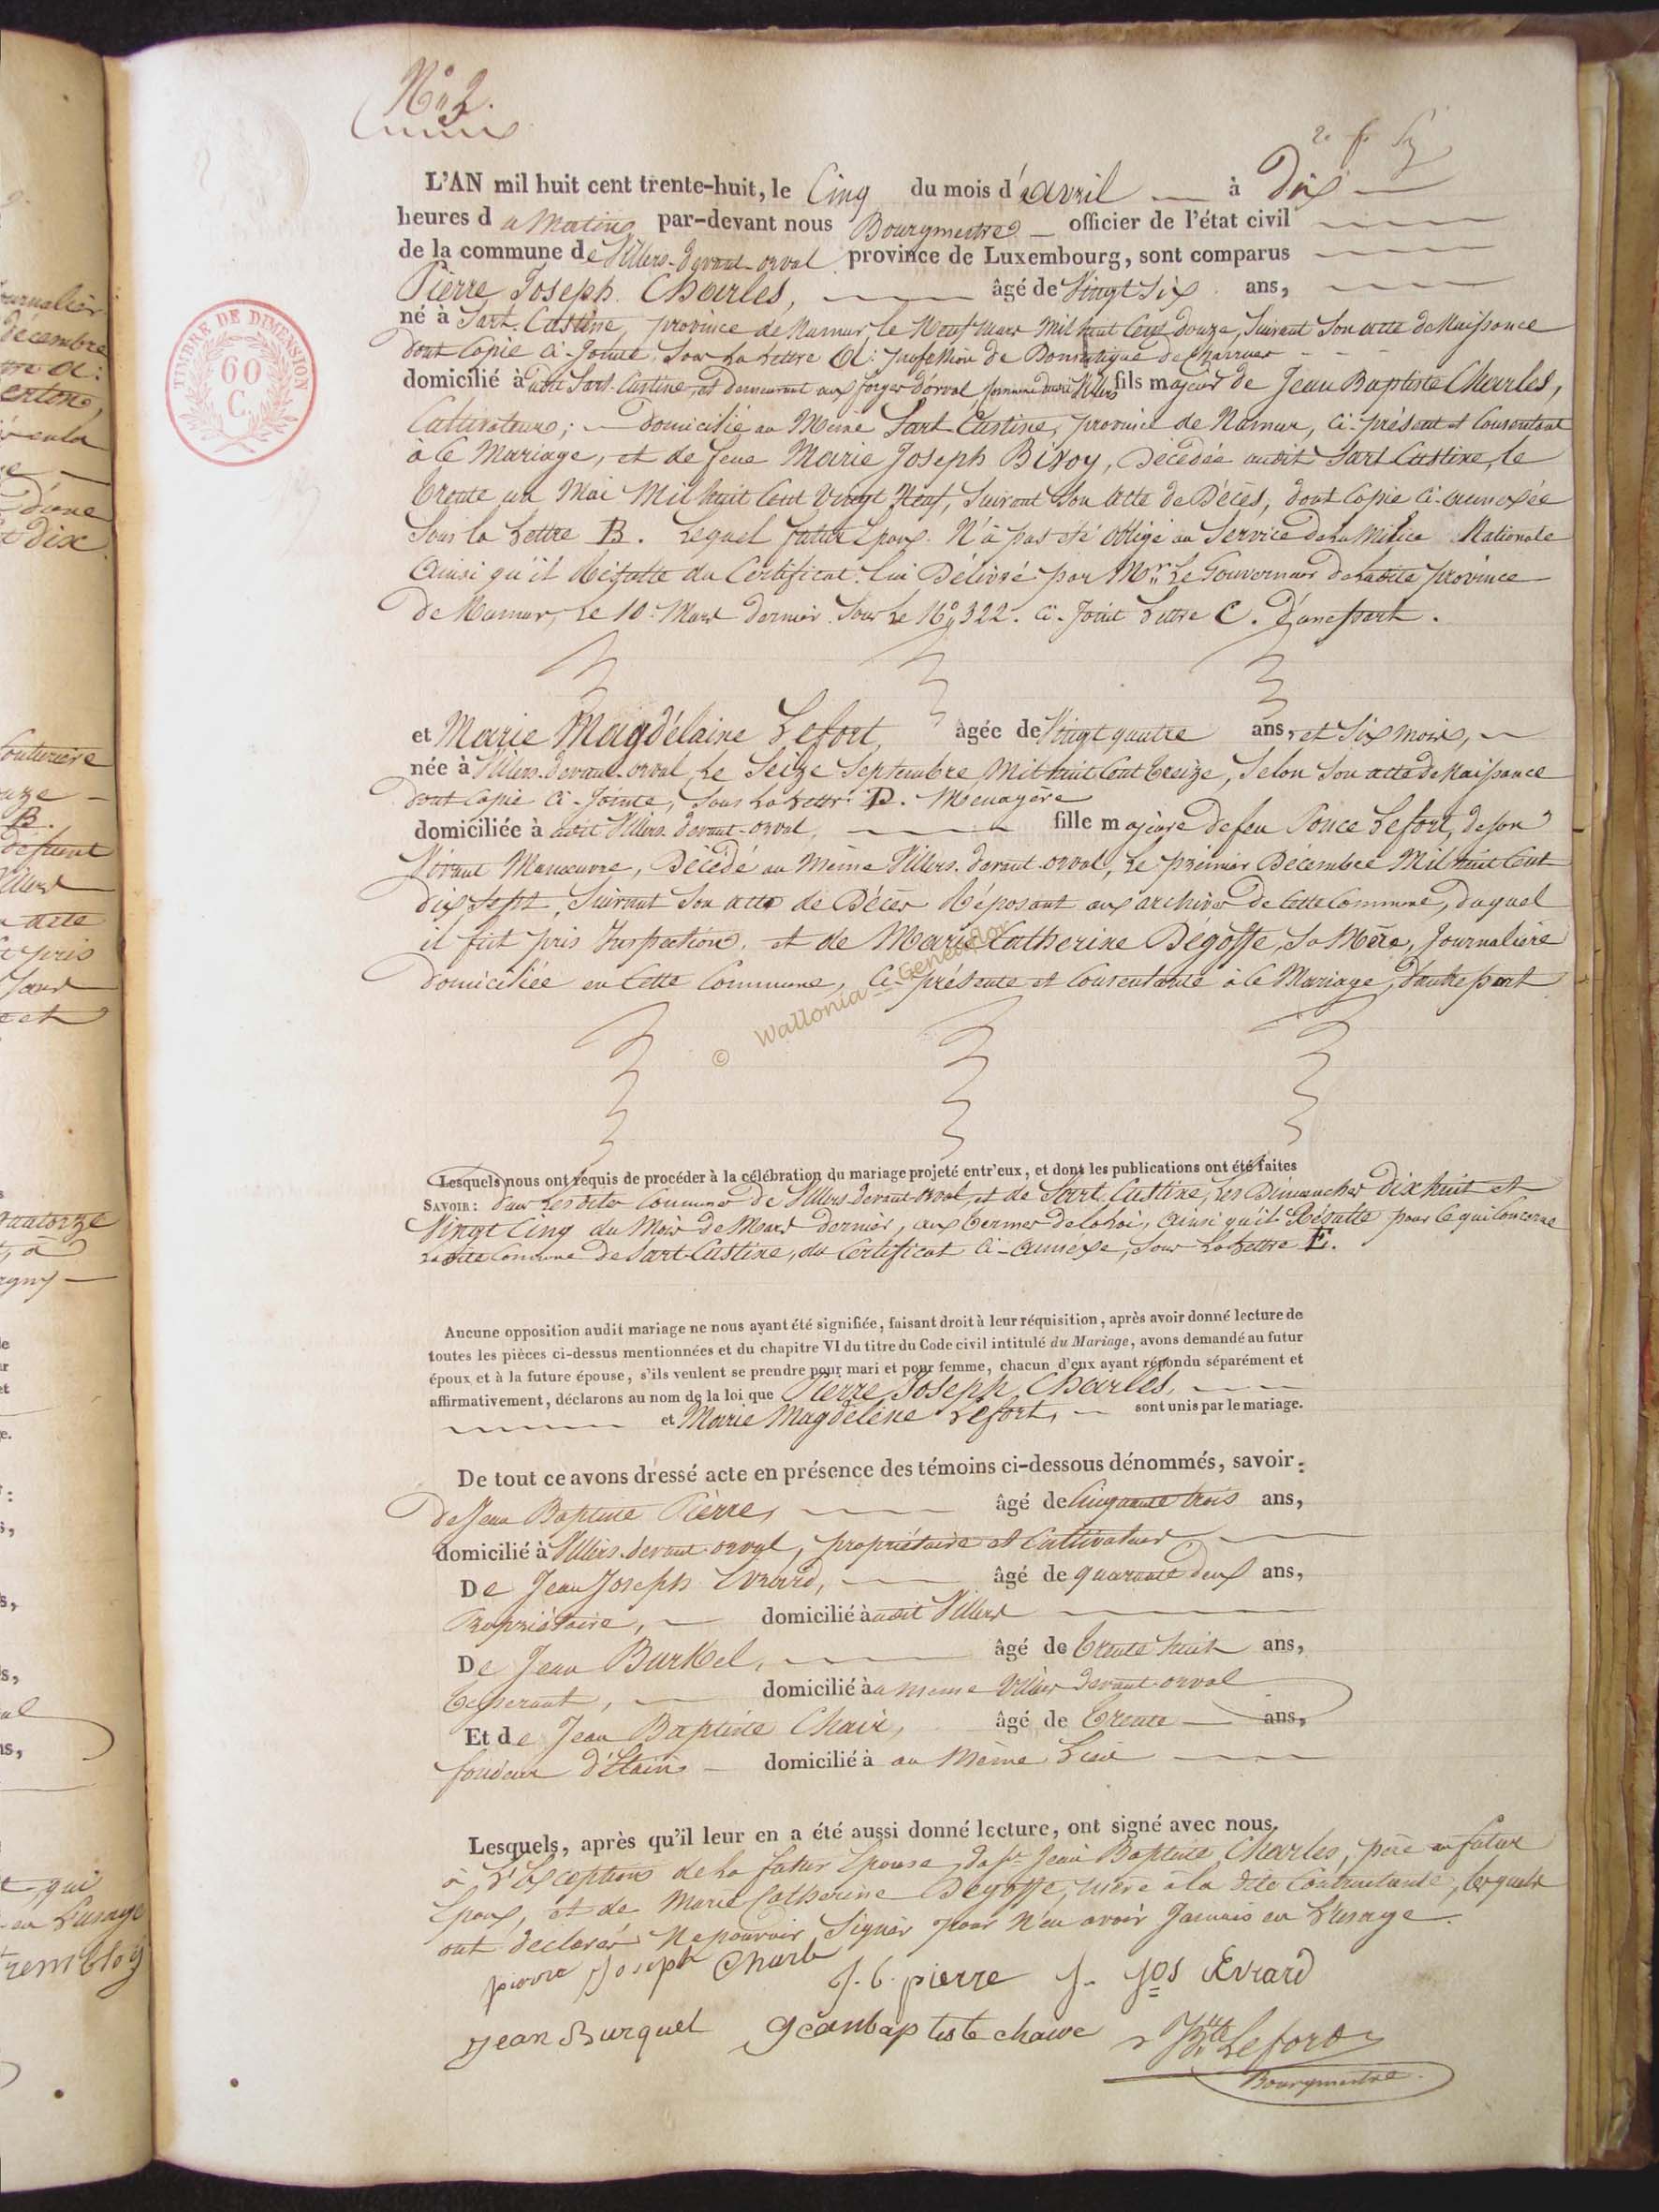 N° 2.
L'AN mil huit cent trente-huit, le Cinq du mois d'avril à Dix
heures du Matin par-devant nous Bourgmestre officier de l'état civil
de la commune de Villers-devant-orval province de Luxembourg, sont comparus
Pierre Joseph Charles, âgé de Vingt Six ans,
né à Sart-Custine, province de Namur le Neuf mars Mil huit Cent douze, Suivant Son acte de Naissance
dont Copie Ci-Jointe Sous La Lettre A: profession de Domestique de charrues
domicilié à audit Sart-Custine, et demeurant aux forges d'orval, Commune dudit Villers fils majeur de Jean Baptiste Charles,
Cultivateur; domicilié au Même Sart-Custine, province de Namur, Ci-présent et Consentant
à Ce Mariage, et de feue Marie Joseph Biroy, Décédée audit Sart Custine, le
trente un Mai Mil huit Cent Vingt Neuf, Suivant Son acte de Décès, dont Copie Ci-annexée
Sous La Lettre B. Lequel futur Epoux N'a pas été obligé au Service de La Milice Nationale
Ainsi qu'il Résulte du Certificat Lui Délivré par Mr Le Gouverneur de Ladite province
De Namur, Le 10 Mars dernier Sous Le N° 322. Ci-Joint Lettre C. d'une part.
et Marie Magdélaine Lefort, âgée de Vingt quatre ans, et Six mois,
née à Villers-devant-orval, Le Seize Septembre Mil huit Cent treize, Selon Son acte de Naissance
dont Copie Ci-Jointe, Sous La Lettre D. Menagère
domiciliée à audit Villers-devant-orval, fille majeure de feu Ponce Lefort, de son
Vivant Manœuvre, Décédé au Même Villers-devant-orval, Le premier Décembre Mil huit Cent
dix Sept, Suivant Son acte de Décès Réposant aux archives de Cette Commune, duquel
il fut pris Inspection, et de Marie Catherine Dégoffe, Sa Mère, Journalière
Domiciliée en Cette Commune, Ci-présente et Consentante à Ce Mariage, d'autre part
© Wallonia - Geneaflor
Lesquels nous ont requis de procéder à la célébration du mariage projeté entr'eux, et dont les publications ont été faites
SAVOIR: dans Lesdites Communes de Villers devant orval, et de Sart Custine, Les Dimanches Dix huit et
Vingt Cinq du Mois de Mars dernier, aux termes de La Loi, Ainsi qu'il Résulte pour Ce qui Concerne
Ladite Commune de Sart-Custine, du Certificat Ci-annéxe, Sous La Lettre E.
Aucune opposition audit mariage ne nous ayant été signifiée, faisant droit à leur réquisition, après avoir donné lecture de
toutes les pièces ci-dessus mentionnées et du chapitre VI du titre du Code civil intitulé du Mariage, avons demandé au futur
époux et à la future épouse, s'ils veulent se prendre pour mari et pour femme, chacun d'eux ayant répondu séparément et
affirmativement, déclarons au nom de la loi que Pierre Joseph Charles,
et Marie Magdeleine Lefort, sont unis par le mariage.
De tout ce avons dressé acte en présence des témoins ci-dessous dénommés, savoir:
De Jean Baptiste Pierre, âgé de Cinquante trois ans,
domicilié à Villers-devant-orval, propriétaire et Cultivateur
De Jean Joseph Evrard, âgé de quarante deux ans,
Propriétaire, domicilié à audit Villers
De Jean Burkel, âgé de trente huit ans,
tisserant, domicilié à au meme Villers devant-orval
Et de Jean Baptiste Chavé, âgé de trente ans,
fondeur d'Etain domicilié à au Même Lieu
Lesquels, après qu'il leur en a été aussi donné lecture, ont signé avec nous,
à L'Exception de La futur Epouse, du Sr Jean Baptiste Charles, père au futur
Epoux, et de Marie Catherine Degoffe, mère à la dite Contractante, lesquels
ont declarés Ne pouvoir Signer pour N'en avoir Jamais eu L'usage.
pierre Joseph Charle J. b. pierre J. Jos Evrard
Jean Burquel Jeanbaptiste chave JBte Lefort
Bourgmestre
TIMBRE DE DIMENSION
60
C.